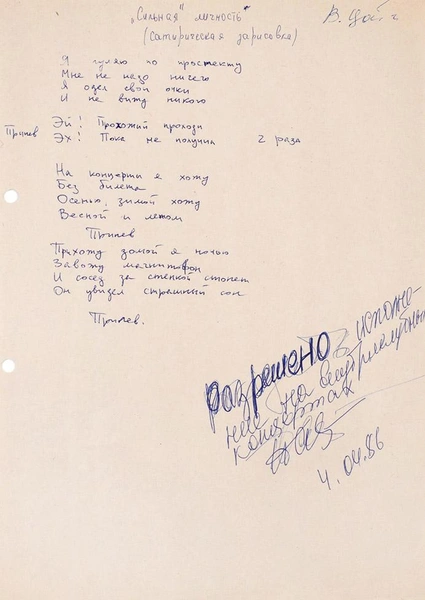 "Сильная" личность
(сатирическая зарисовка)
В. Цой
Я гуляю по проспекту
Мне не надо ничего
Я одел свои очки
И не вижу никого
Припев
Эй! Прохожий проходи
Эх! Пока не получил 2 раза
На концерты я хожу
Без билета
Осенью, зимой хожу
Весной и летом
Припев
Прихожу домой я ночью
Завожу магнитофон
И сосед за стенкой стонет
Он увидел страшный сон
Припев.
разрешено исполне-
ние на
концертах
4.04.86